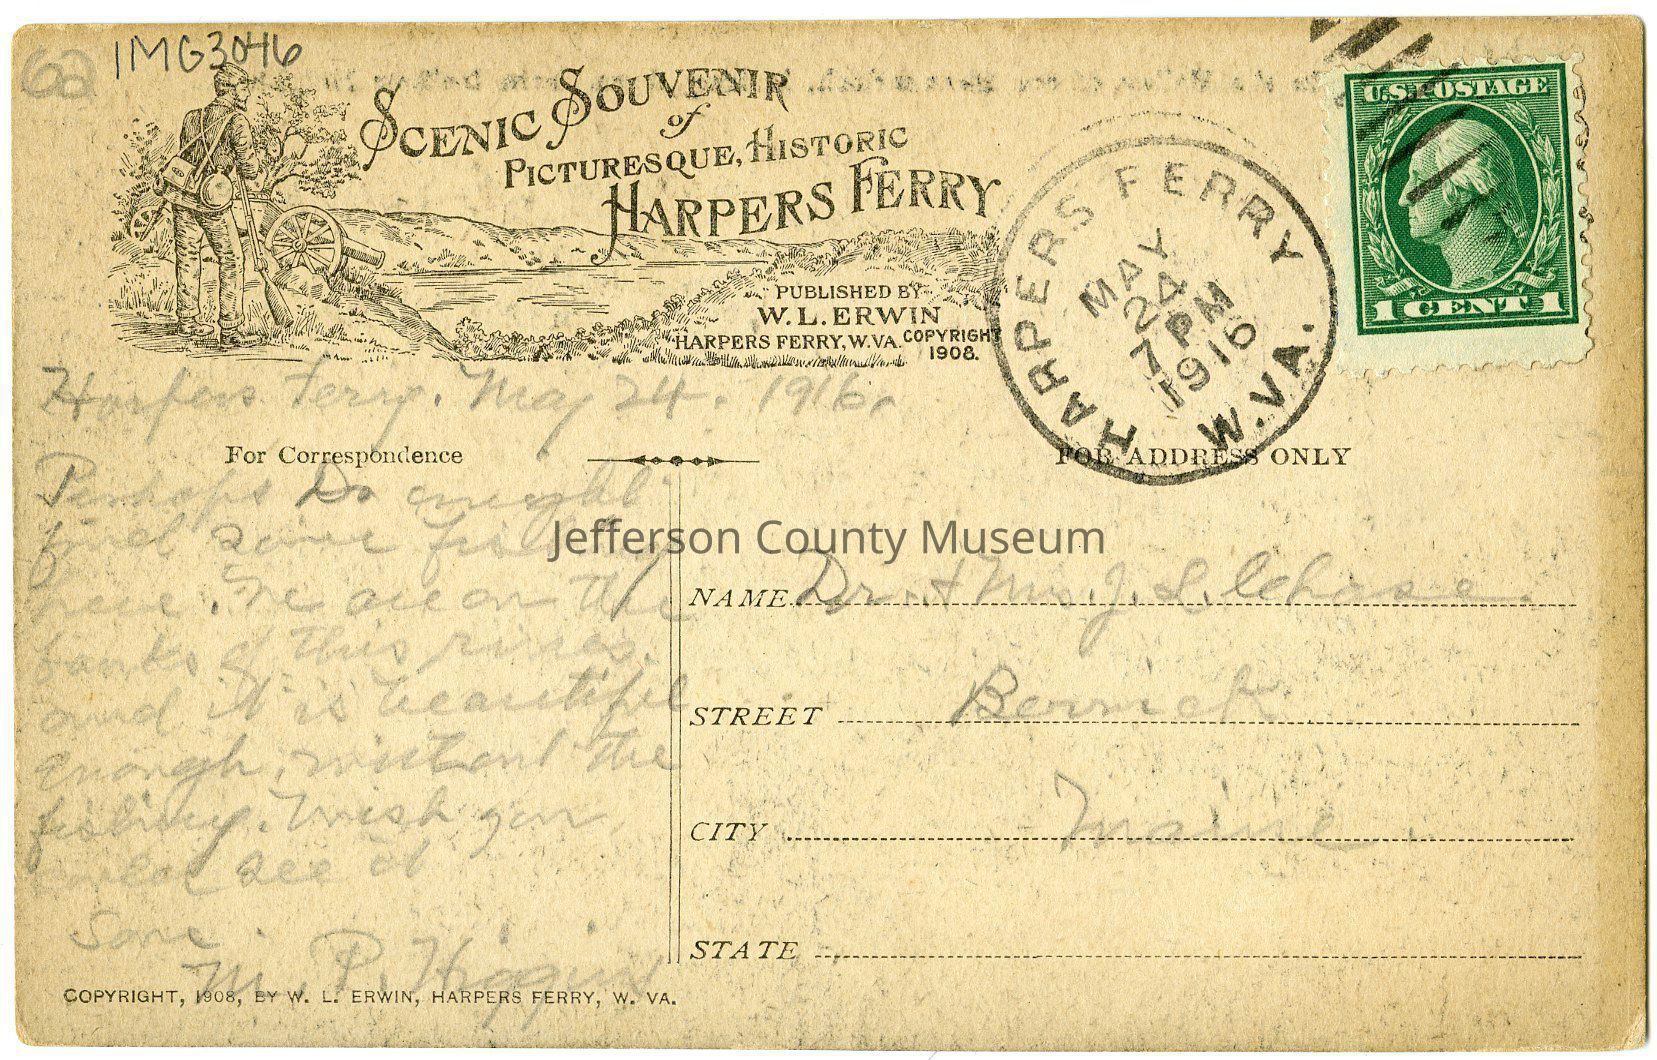 62
IMG3046
SCENIC SOUVENIR
of
PICTURESQUE, HISTORIC
HARPERS FERRY
PUBLISHED BY
W. L. ERWIN
HARPERS FERRY, W. VA. COPYRIGHT
1908.
HARPERS FERRY
MAY
24
7 PM
1916
W. VA.
U.S. POSTAGE
1 CENT 1
Harpers Ferry. May 24. 1916.
For Correspondence
FOR ADDRESS ONLY
Perhaps Dr might
find some
here. We are on the
banks of this river.
and it is beautiful
enough, without the
fishing. Wish you
could see it
M. P. Higgins
Jefferson County Museum
NAME Dr. + Mrs. J. L. Chase.
STREET Berwick
CITY Maine.
STATE
COPYRIGHT, 1908, BY W. L. ERWIN, HARPERS FERRY, W. VA.